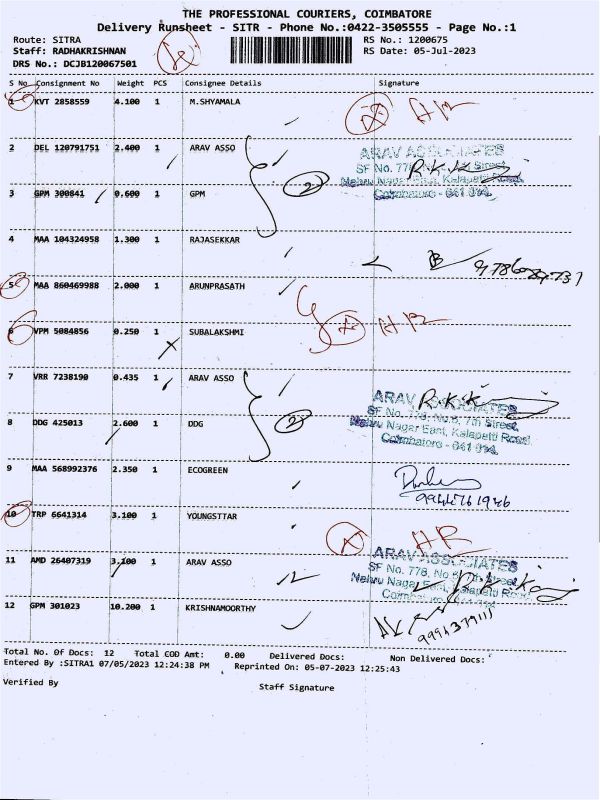 THE PROFESSIONAL COURIERS, COIMBATORE
Delivery Runsheet - SITR - Phone No.:0422-3505555 - Page No.:1
Route: SITRA RS No.: 1200675
Staff: RADHAKRISHNAN RS Date: 05-Jul-2023
DRS No.: DCJB120067501
S No Consignment No Weight PCS Consignee Details Signature
1 KVT 2858559 4.100 1 M.SHYAMALA
2 DEL 120791751 2.400 1 ARAV ASSO
ARAV ASSOCIATES
3 GPM 300841 0.600 1 GPM
2
Coimbatore - 641 014.
4 MAA 104324958 1.300 1 RAJASEKKAR
5 MAA 860469988 2.000 1 ARUNPRASATH
6 VPM 5084856 0.250 1 SUBALAKSHMI
7 VRR 7238190 0.435 1 ARAV ASSO
ARAV ASSOCIATES
SF No. 778, No.5, 7th Street,
8 DDG 425013 2.600 1 DDG
2
Nehru Nagar East, Kalapatti Road,
Coimbatore - 641 014.
9 MAA 568992376 2.350 1 ECOGREEN
10 TRP 6641314 3.100 1 YOUNGSTTAR
11 AMD 26407319 3.100 1 ARAV ASSO
ARAV ASSOCIATES
12 GPM 301023 10.200 1 KRISHNAMOORTHY
Total No. Of Docs: 12 Total COD Amt: 0.00 Delivered Docs: Non Delivered Docs:
Entered By :SITRA1 07/05/2023 12:24:38 PM Reprinted On: 05-07-2023 12:25:43
Verified By Staff Signature